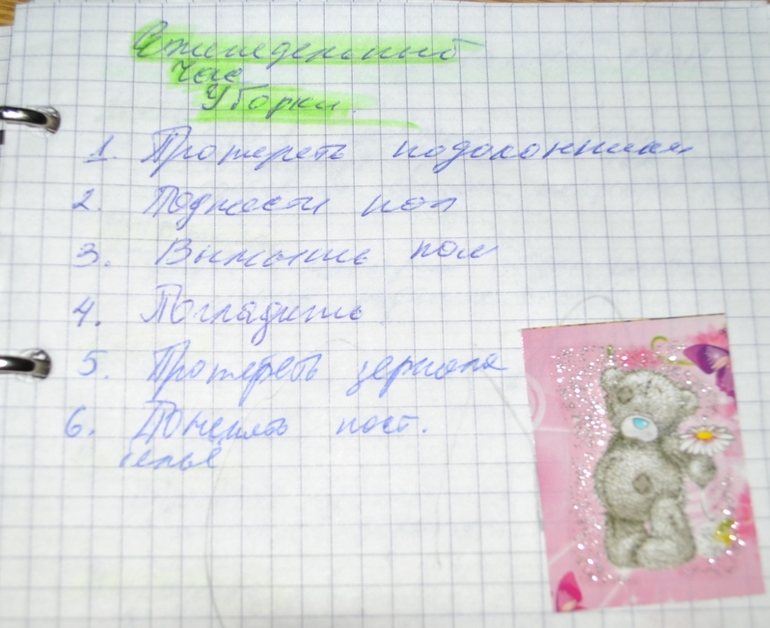 Еженедельный
час
Уборки.
1. Протереть подоконники
2. Подмести пол
3. Вымыть пол
4. Погладить
5. Протереть зеркала
6. Поменять пост.
бельё